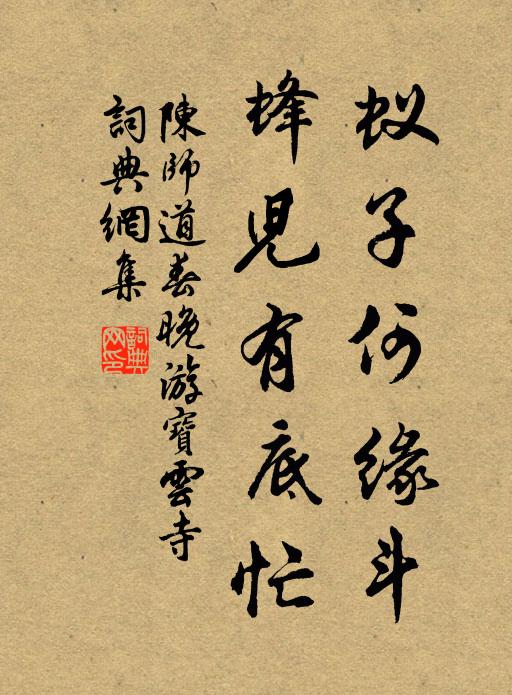 蚁子何缘斗
蜂兒有底忙
陳師道春晚游寶雲寺
詞典網集
詞典网印